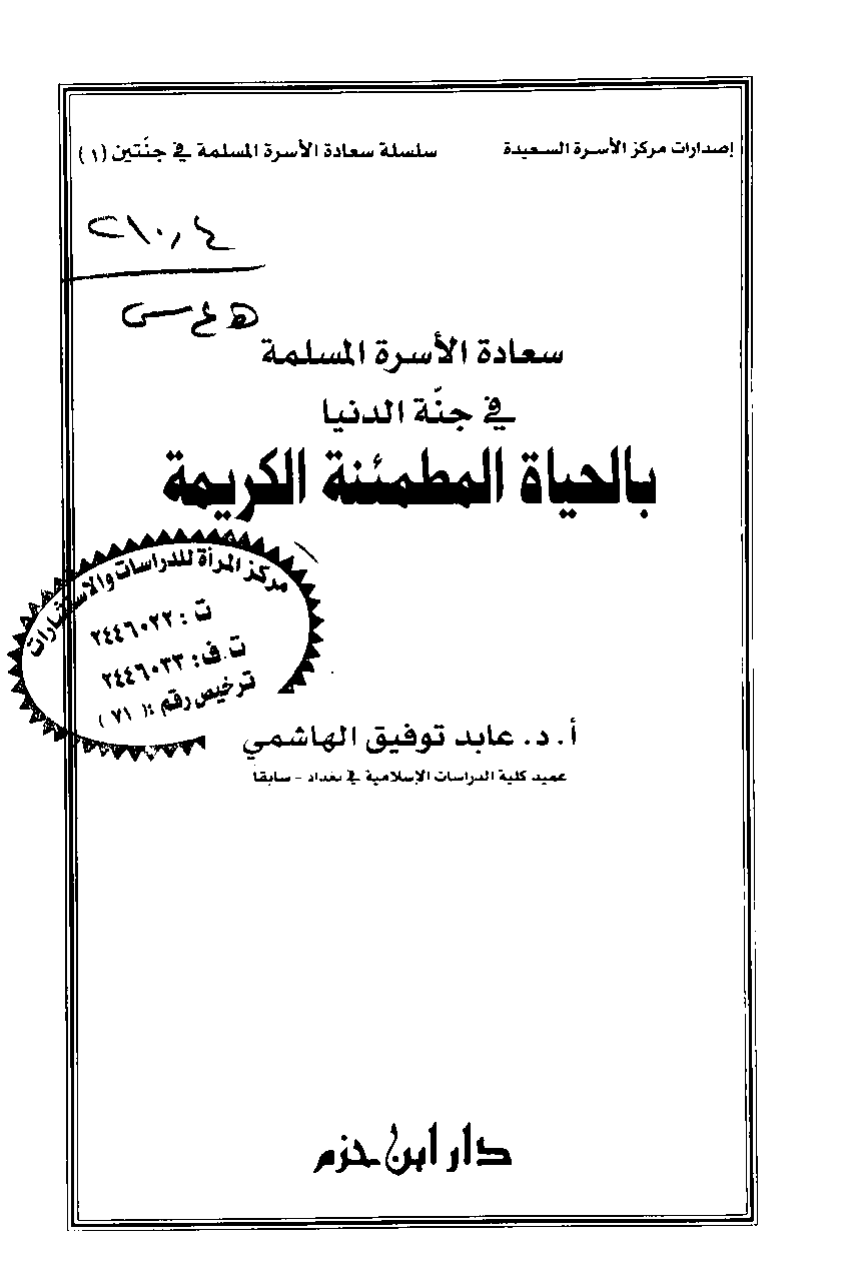 إصدارات مركز الأسرة السعيدة
سلسلة سعادة الأسرة المسلمة في جنّتين (١)
٢١٠,٤
ه ع س
سعادة الأسرة المسلمة
في جنّة الدنيا
بالحياة المطمئنة الكريمة
مركز المرأة للدراسات والاستشارات
ت : ٢٤٤٦٠٢٢
ت.ف: ٢٤٤٦٠٣٣
ترخيص رقم :( ٧١ )
أ. د. عابد توفيق الهاشمي
عميد كلية الدراسات الإسلامية في بغداد - سابقا
دار ابن حزم